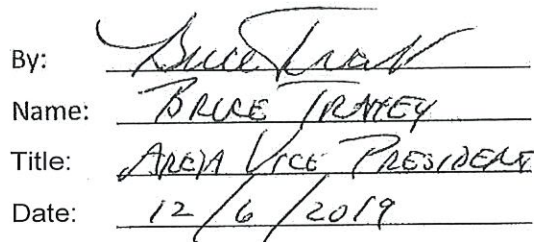 By: Bruce
Name: BRUCE
Title: AREA VICE PRESIDENT
Date: 12/6/2019